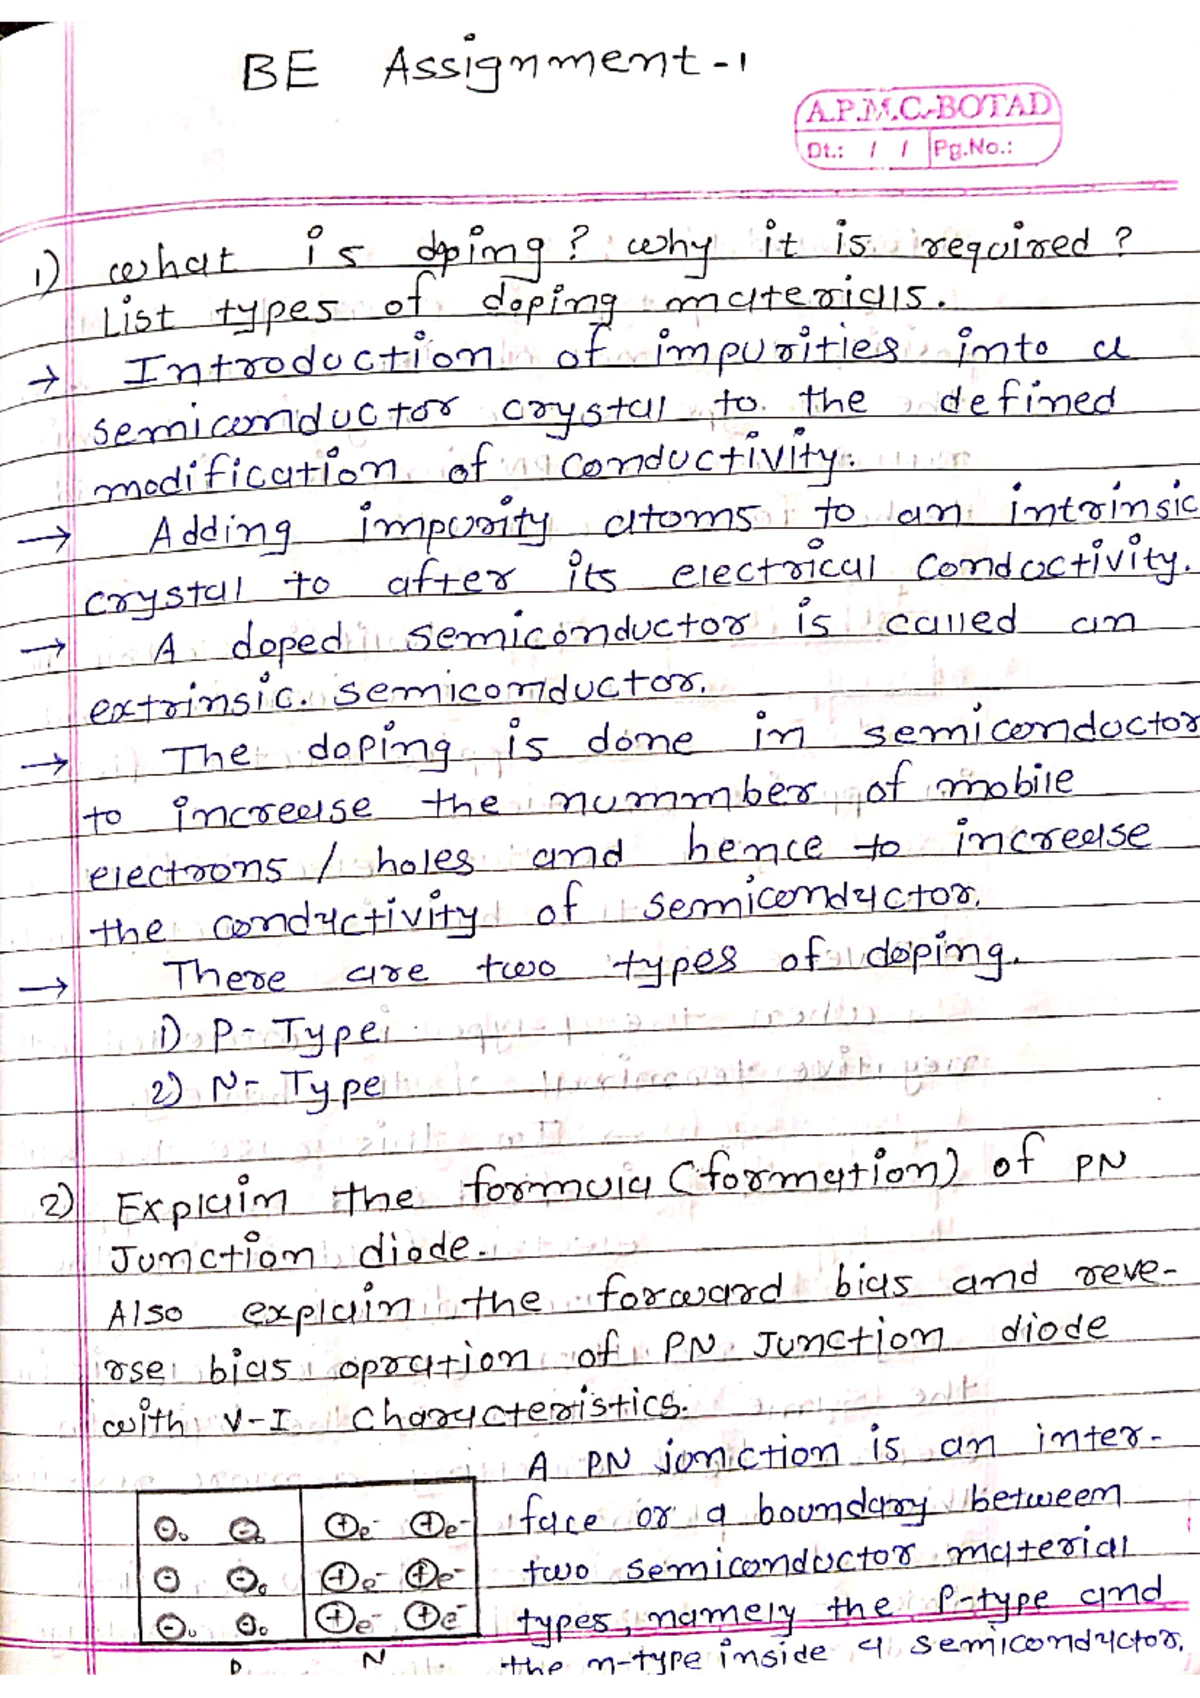 BE Assignment-1
A.P.M.C.-BOTAD
Dt.: / / Pg.No.:
1) what is doping? why it is required?
List types of doping materials.
→ Introduction of impurities into a
semiconductor crystal to the defined
modification of conductivity.
→ Adding impurity atoms to an intrinsic
crystal to after its electrical conductivity.
→ A doped semiconductor is called an
extrinsic. semiconductor.
→ The doping is done in semiconductor
to increase the nummber of mobile
electrons / holes and hence to increase
the conductivity of semiconductor.
→ There are two types of doping.
1) P-Type
2) N-Type
2) Explain the formula (formation) of PN
Junction diode.
Also explain the forward bias and reve-
rse bias opration of PN Junction diode
with V-I characteristics.
A PN jonction is an inter-
face or a boundary between
two semiconductor material
types, namely the P-type and
the n-type inside a semiconductor.
P N